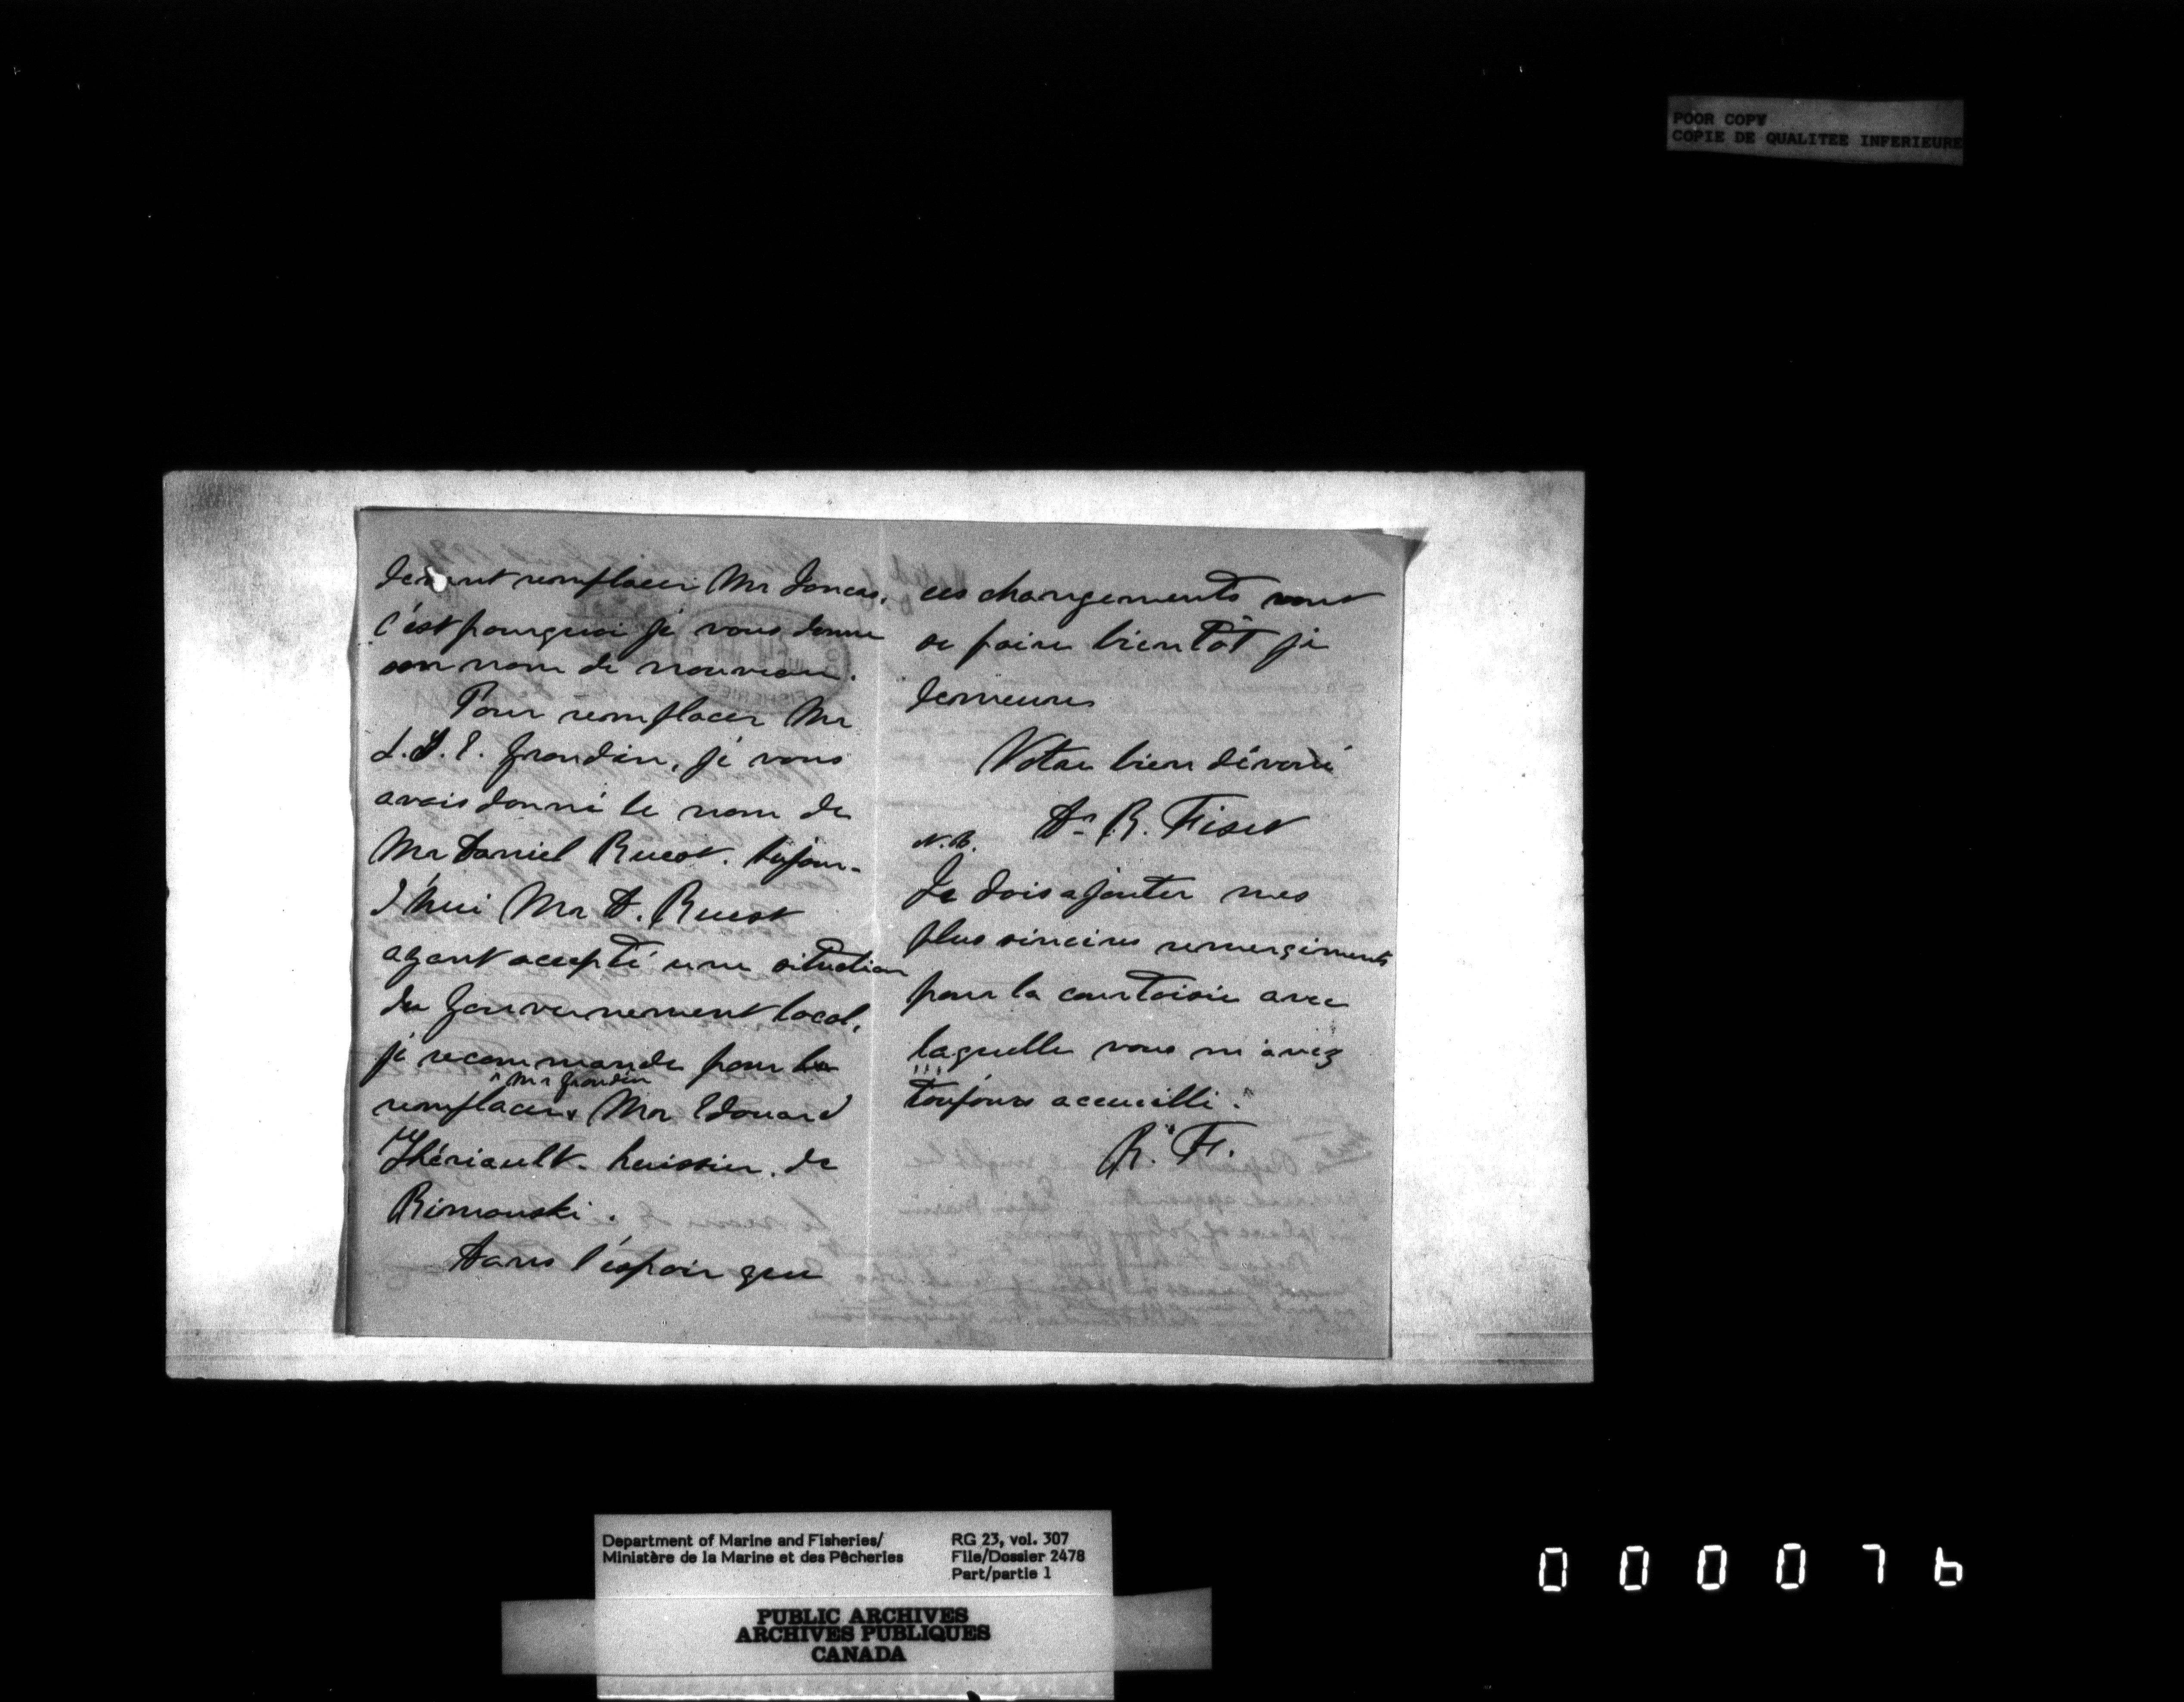 POOR COPY
COPIE DE QUALITEE INFERIEURE
devant remplacer Mr Joncas,
c'est pourquoi je vous donne
son nom de nouveau.
Pour remplacer Mr
L. J. E. Grondin, je vous
avais donné le nom de
Mr Daniel Ruest. Aujour-
d'hui Mr D. Ruest
ayant accepté une situation
du Gouvernement local,
je recommande pour
Mr Grondin
remplacer Mr Edouard
Thériault. huissier. de
Rimouski.
Dans l'espoir que
ces changements vont
se faire bientôt je
demeure
Votre bien dévoué
Dr R. Fiset
N.B.
Je dois ajouter mes
plus sincères remerciments
pour la courtoisie avec
laquelle vous m'avez
toujours accueilli.
R. F.
Department of Marine and Fisheries/
Ministère de la Marine et des Pêcheries
RG 23, vol. 307
File/Dossier 2478
Part/partie 1
PUBLIC ARCHIVES
ARCHIVES PUBLIQUES
CANADA
000076